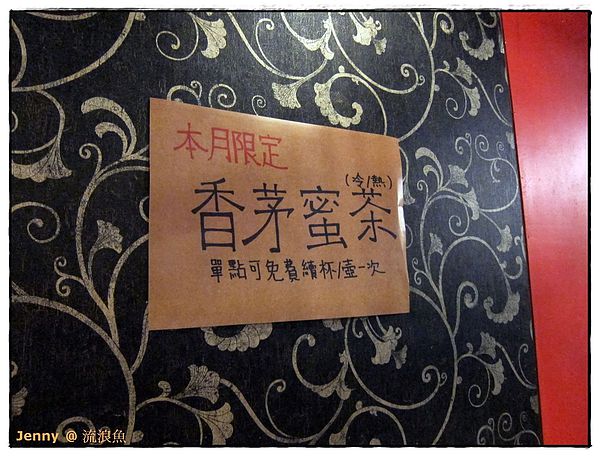 本月限定
(冷/熱)
香茅蜜茶
單點可免費續杯/壺一次
Jenny @ 流浪魚